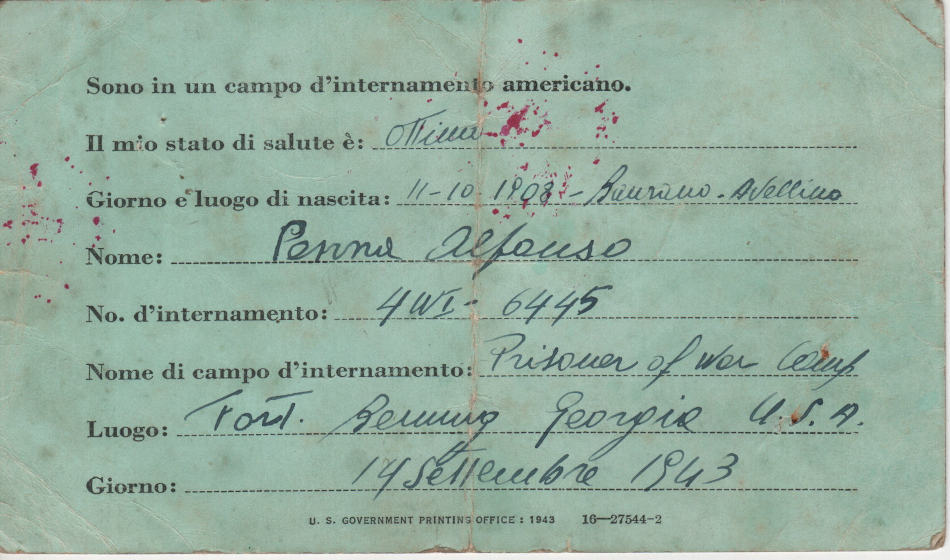 Sono in un campo d'internamento americano.
Il mio stato di salute è: Ottimo
Giorno e luogo di nascita: 11-10-1908 - - Avellino
Nome: Penna Alfonso
No. d'internamento: 4WI- 6445
Nome di campo d'internamento: Prisoner of War Camp
Luogo: Fort. Benning Georgia U.S.A.
Giorno: 14 Settembre 1943
U. S. GOVERNMENT PRINTING OFFICE : 1943 16—27544-2